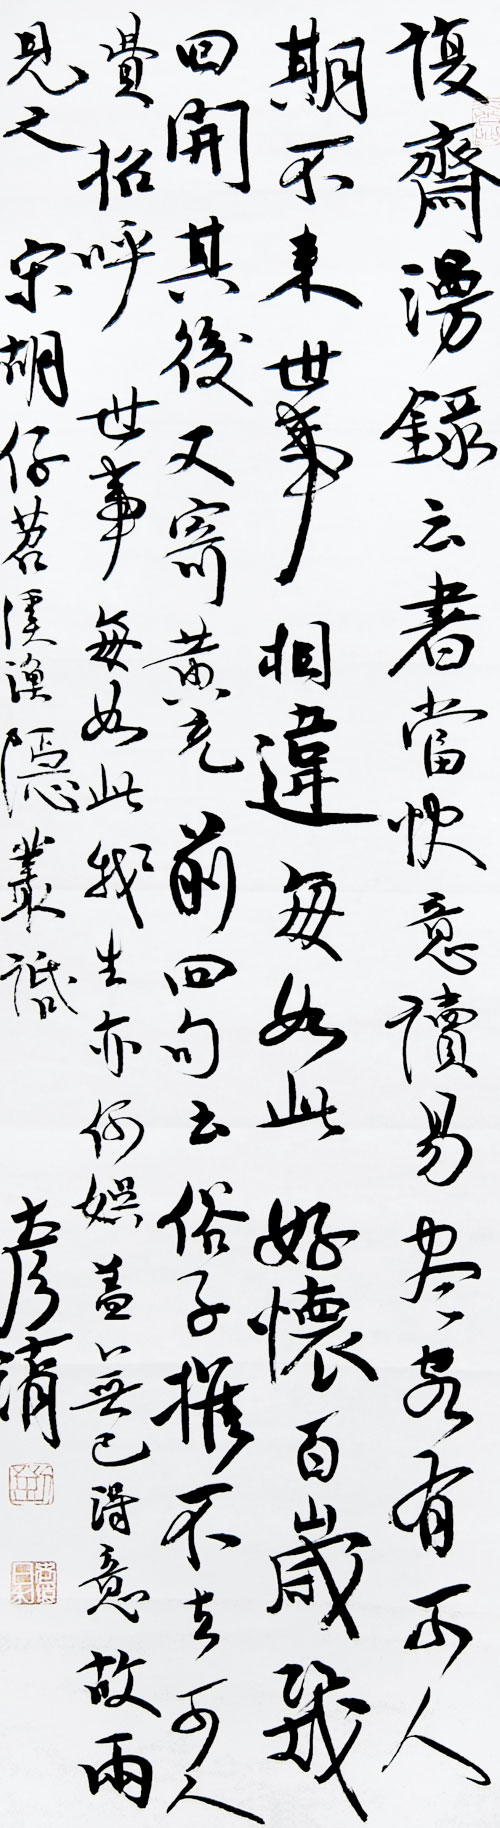 復齋漫録云書當快意讀易尽客有可人
期不來世事相違每如此好懷百歲幾
回開其後又寄黄充前四句云俗子推不去可人
費招呼世事每如此我生亦何娱盖無己得意故兩
見之宋胡仔苕溪漁隱叢話